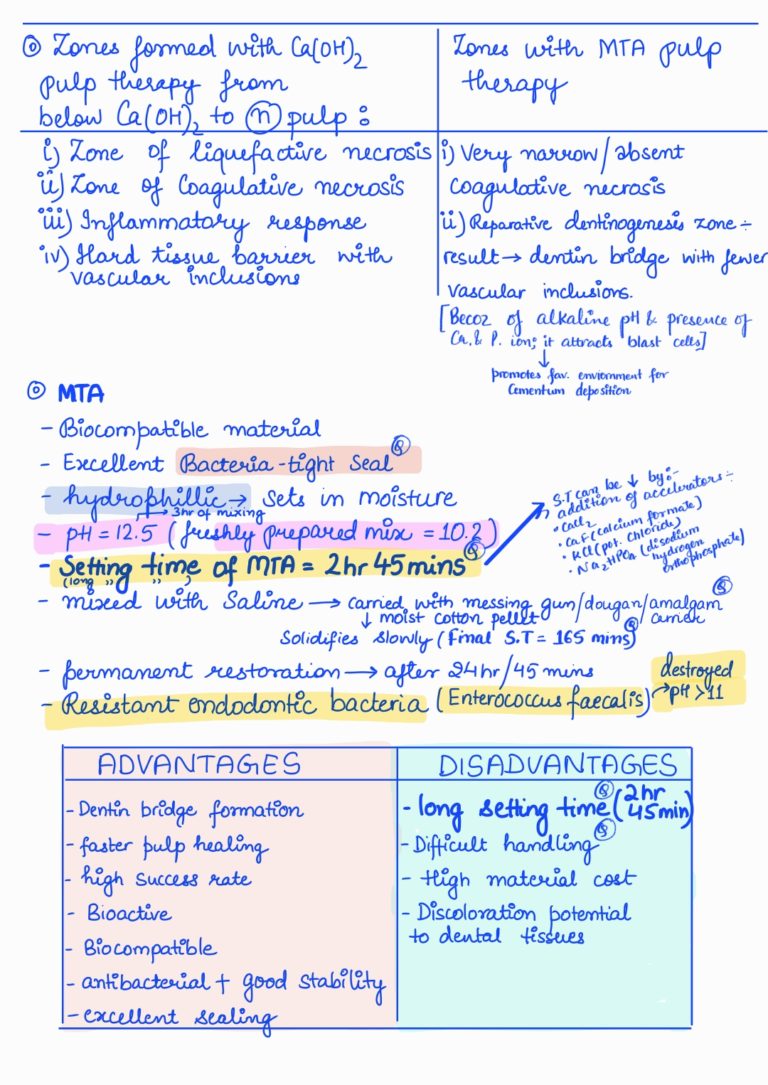 Zones formed with Ca(OH)2
pulp therapy from
below Ca(OH)2 to (n) pulp :
Zones with MTA pulp
therapy
i) Zone of liquefactive necrosis
ii) Zone of Coagulative necrosis
iii) Inflammatory response
iv) Hard tissue barrier with
vascular inclusions
i) Very narrow/absent
coagulative necrosis
ii) Reparative dentinogenesis zone ÷
result → dentin bridge with fewer
vascular inclusions.
[Becoz of alkaline pH & presence of
Ca. & P. ion; it attracts blast cells]
↓
promotes fav. enviornment for
Cementum deposition
MTA
- Biocompatible material
- Excellent Bacteria-tight Seal Q
- hydrophillic → sets in moisture
→ 3hr of mixing
- pH = 12.5 (freshly prepared mix = 10.2)
- Setting time of MTA = 2hr 45mins Q
(long " " )
S.T can be ↓ by:-
addition of accelerators ÷
• CaCl2
• CaF (calcium formate)
• KCl (pot. chloride)
• Na2HPO4 (disodium
hydrogen
orthophosphate)
- mixed with Saline → carried with messing gun/dougan/amalgam
carrier Q
↓ moist cotton pellet
Solidifies slowly (Final S.T = 165 mins) Q
- permanent restoration → after 24hr/45 mins
- Resistant endodontic bacteria (Enterococcus faecalis)
destroyed
→ pH >11
ADVANTAGES
- Dentin bridge formation
- faster pulp healing
- high success rate
- Bioactive
- Biocompatible
- antibacterial + good stability
- excellent sealing
DISADVANTAGES
- long setting time Q (2hr
45min)
- Difficult handling Q
- High material cost
- Discoloration potential
to dental tissues